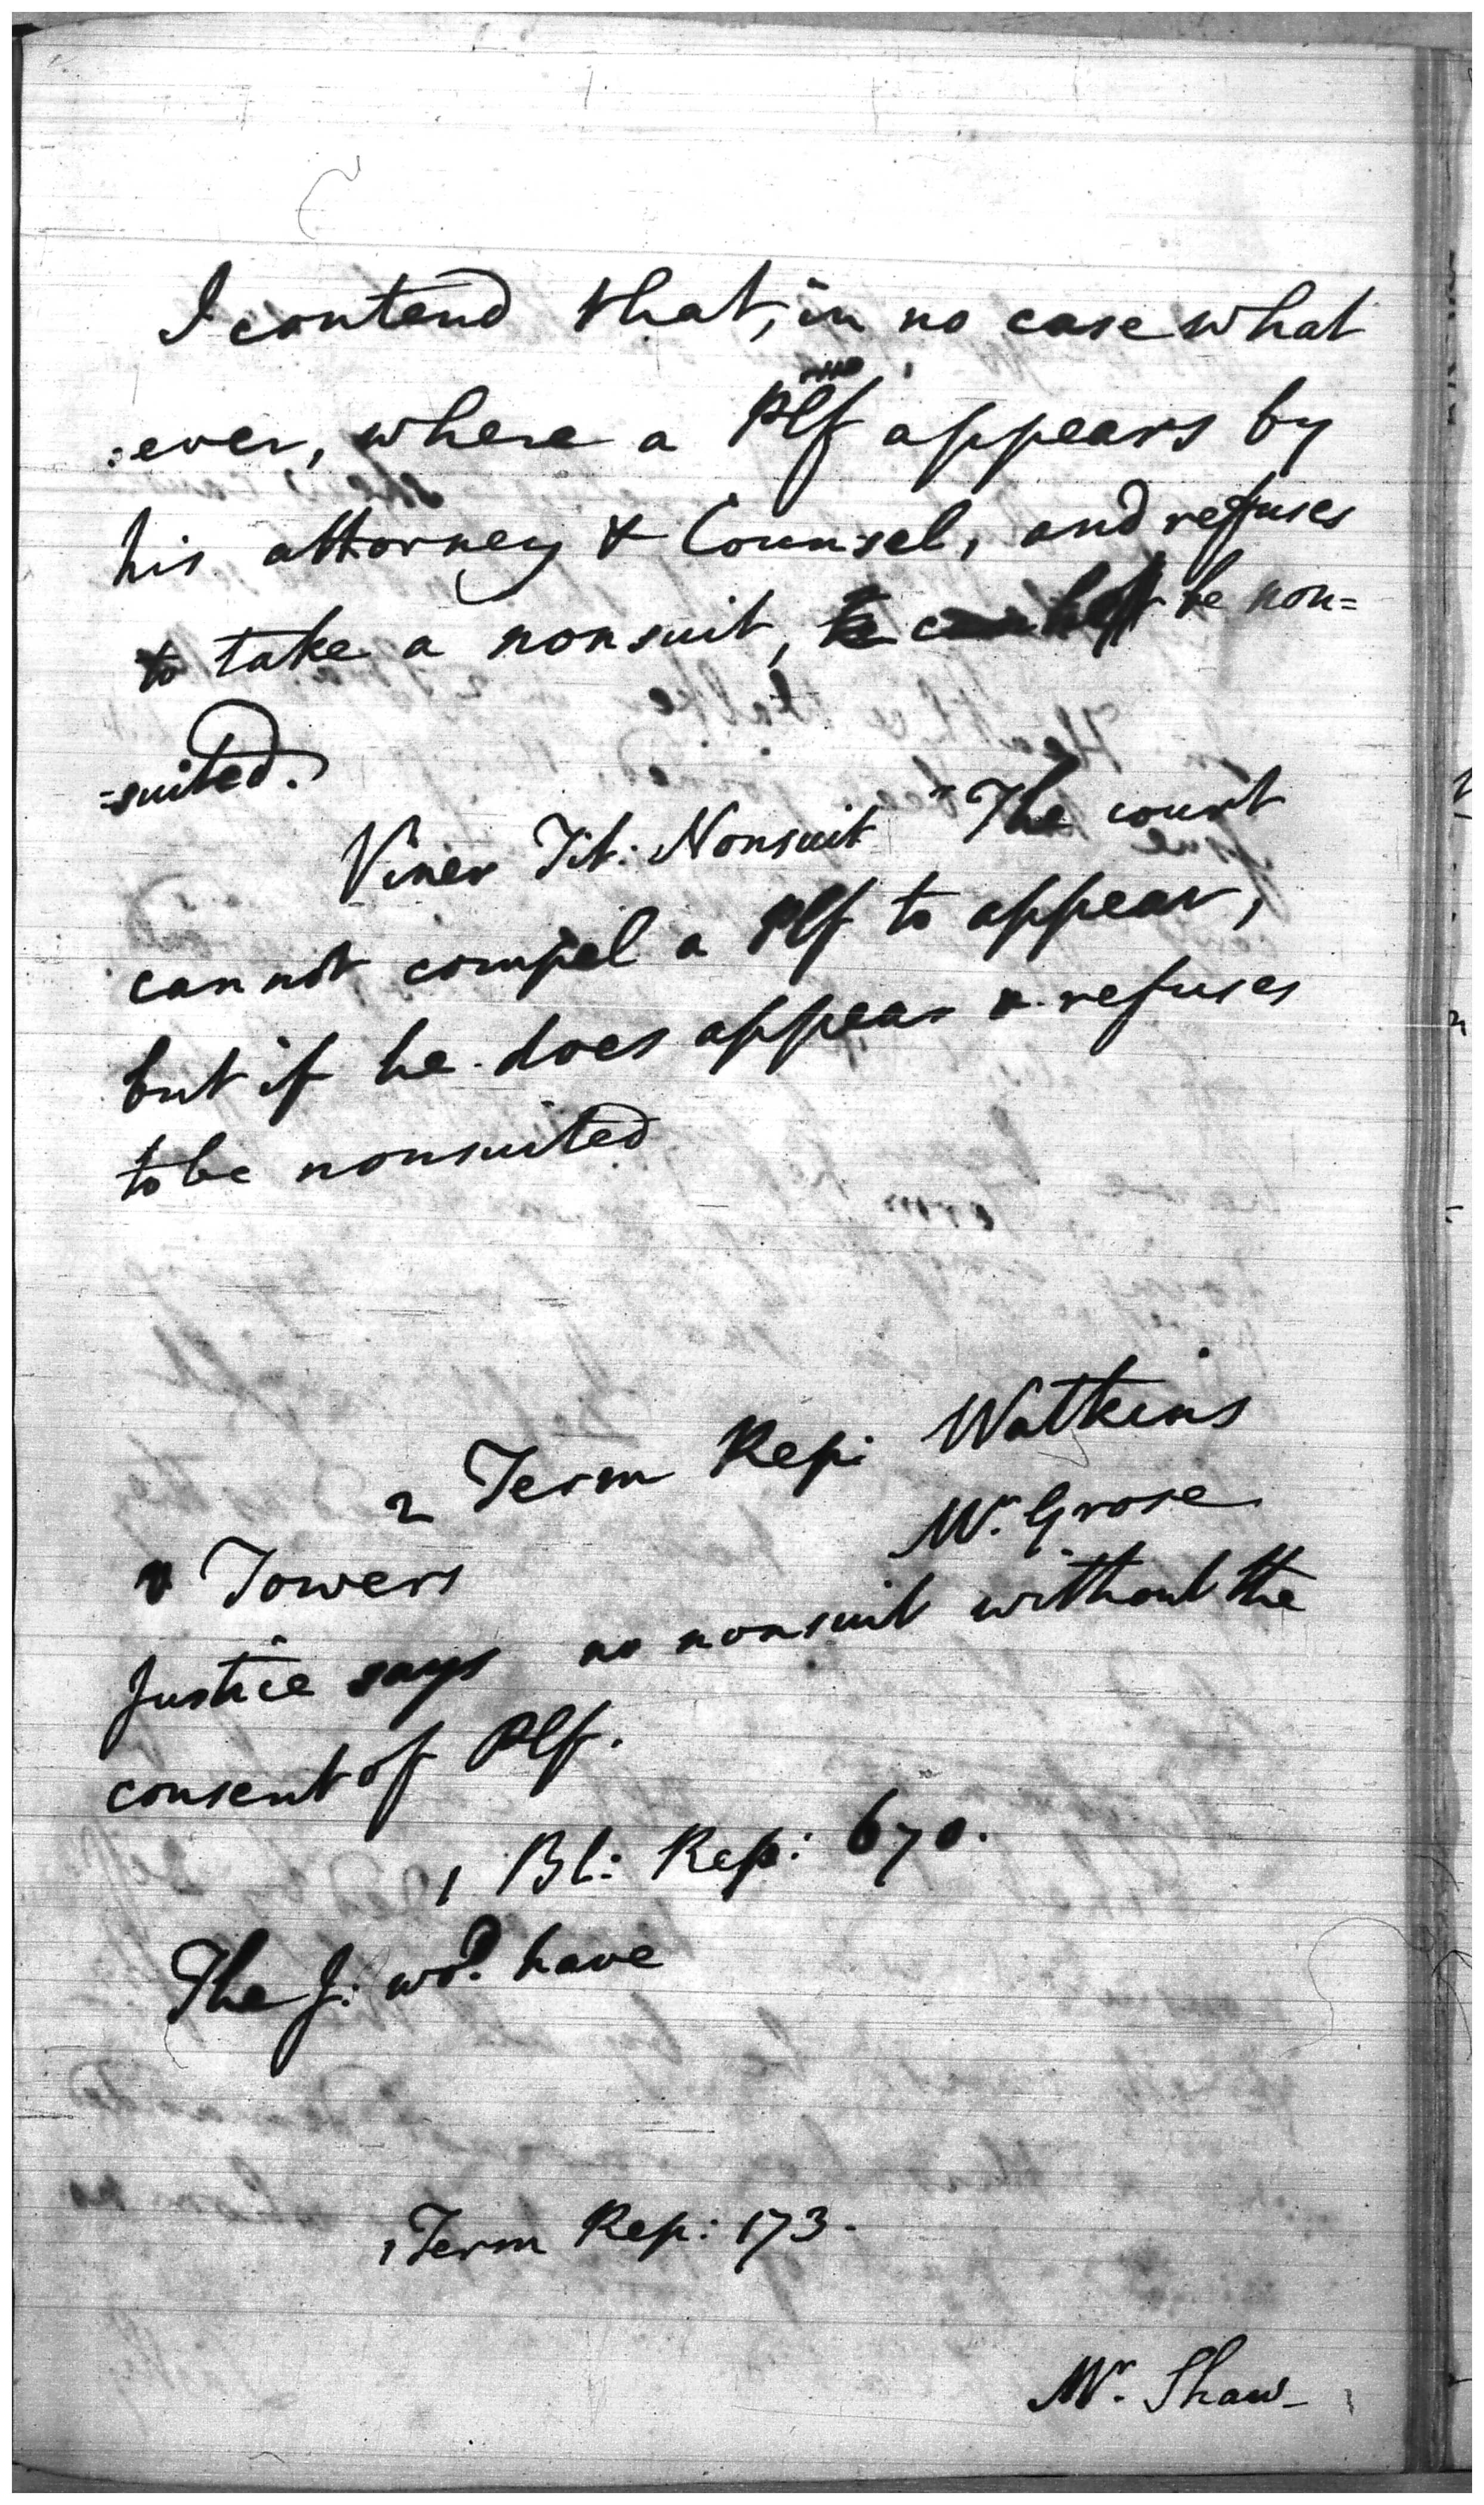 I contend that, in no case what
:ever, where a Plf appears by
his attorney & Counsel, and refuses
to take a nonsuit, he be non=
=suited.
Viner Tit: Nonsuit "The court
cannot compel a Plf to appear,
but if he does appear & refuses
to be nonsuited
2 Term Rep: Watkins
v Towers Mr. Grose
Justice says no nonsuit without the
consent of Plf.
1 Bl: Rep: 670.
The J: wd. have
1 Term Rep: 173.
Mr. Shaw